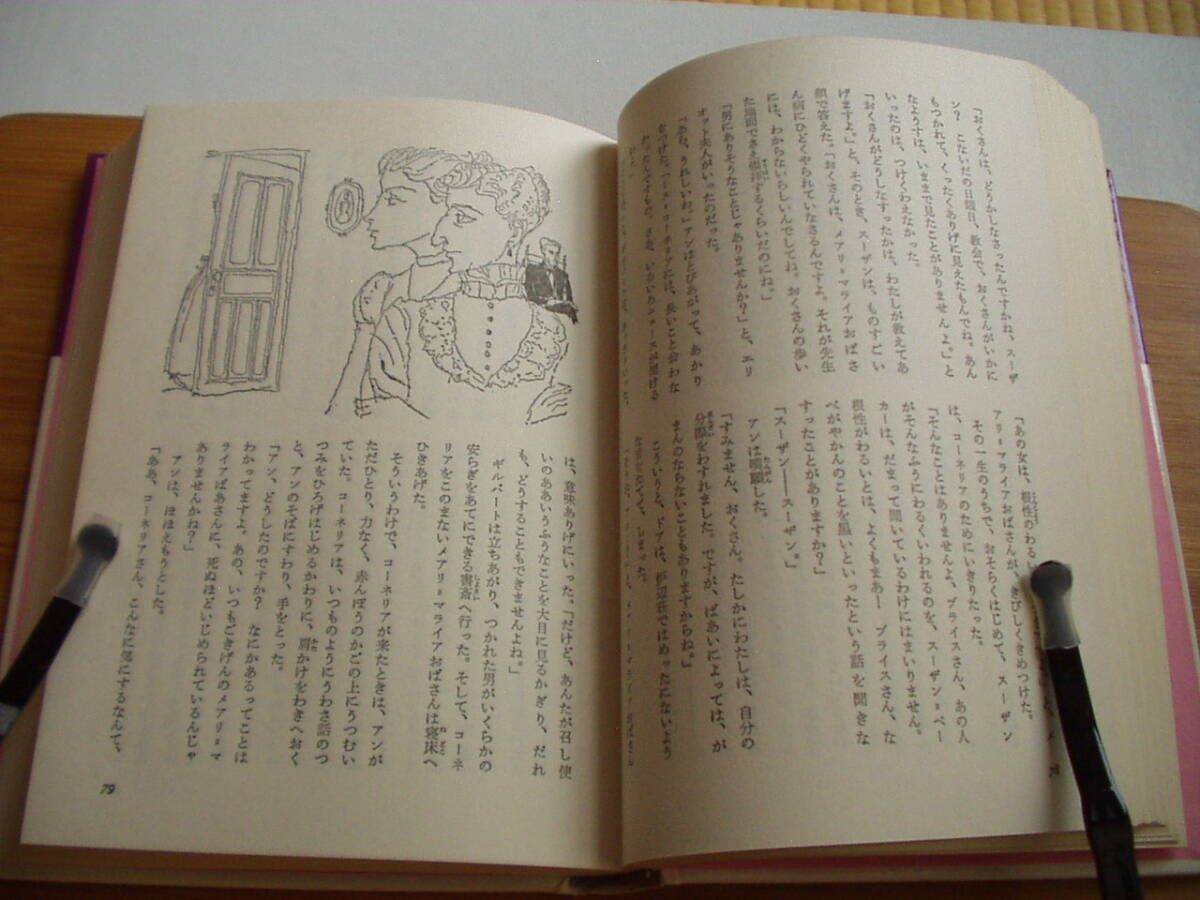 「おくさんは、どうかしなさったんですかね、スーザ
ン？　こないだの日曜日、教会で、おくさんがいかに
もつかれて、くったくありげに見えたもんでね。あん
なようすは、いままで見たことがありませんよ。」と
いったのは、つけくわえなかった。
「おくさんがどうしなすったかは、わたしが教えてあ
げますよ。」と、そのとき、スーザンは、ものすごい
顔で答えた。「おくさんは、メアリ＝マライアおばさ
ん病にひどくやられていなさるんですよ。それが先生
には、わからないらしいんでしてね。おくさんの歩い
た地面でさえ崇拝するくらいだのにね。」
「男にありそうなことじゃありませんか？」と、エリ
オット夫人がいったのだった。
「ああ、うれしいわ。」アンはとびあがって、あかり
「あの女は、根性のわる
アリ＝マライアおばさんが、きびしくきめつけた。
その一生のうちで、おそらくはじめて、スーザン
は、コーネリアのためにいきりたった。
「そんなことはありませんよ、ブライスさん、あの人
がそんなふうにわるくいわれるのを、スーザン＝ベー
カーは、だまって聞いているわけにはまいりません。
根性がわるいとは、よくもまあ！　ブライスさん、な
べがやかんのことを黒いといったという話を聞きな
すったことがありますか？」
「スーザン――スーザン。」
アンは嘆願した。
「すみません、おくさん。たしかにわたしは、自分の
分際をわすれました。ですが、ばあいによっては、が
まんのならないこともありますからね。」
こういうと、ドアは、炉辺荘ではめったにないよう
は、意味ありげにいった。「だけど、あんたが召し使
いのああいうふうなことを大目に見るかぎり、だれ
も、どうすることもできませんよね。」
ギルバートは立ちあがり、つかれた男がいくらかの
安らぎをあてにできる書斎へ行った。そして、コーネ
リアをこのまないメアリ＝マライアおばさんは寝床へ
ひきあげた。
そういうわけで、コーネリアが来たときは、アンが
ただひとり、力なく、赤んぼうのかごの上にうつむい
ていた。コーネリアは、いつものようにうわさ話のつ
つみをひろげはじめるかわりに、肩かけをわきへおく
と、アンのそばにすわり、手をとった。
「アン、どうしたのですか？　なにかあるってことは
わかってますよ。あの、いつもごきげんのメアリ＝マ
ライアばあさんに、死ぬほどいじめられているんじゃ
ありませんかね？」
アンは、ほほえもうとした。
「ああ、コーネリアさん、こんなに気にするなんて、
79